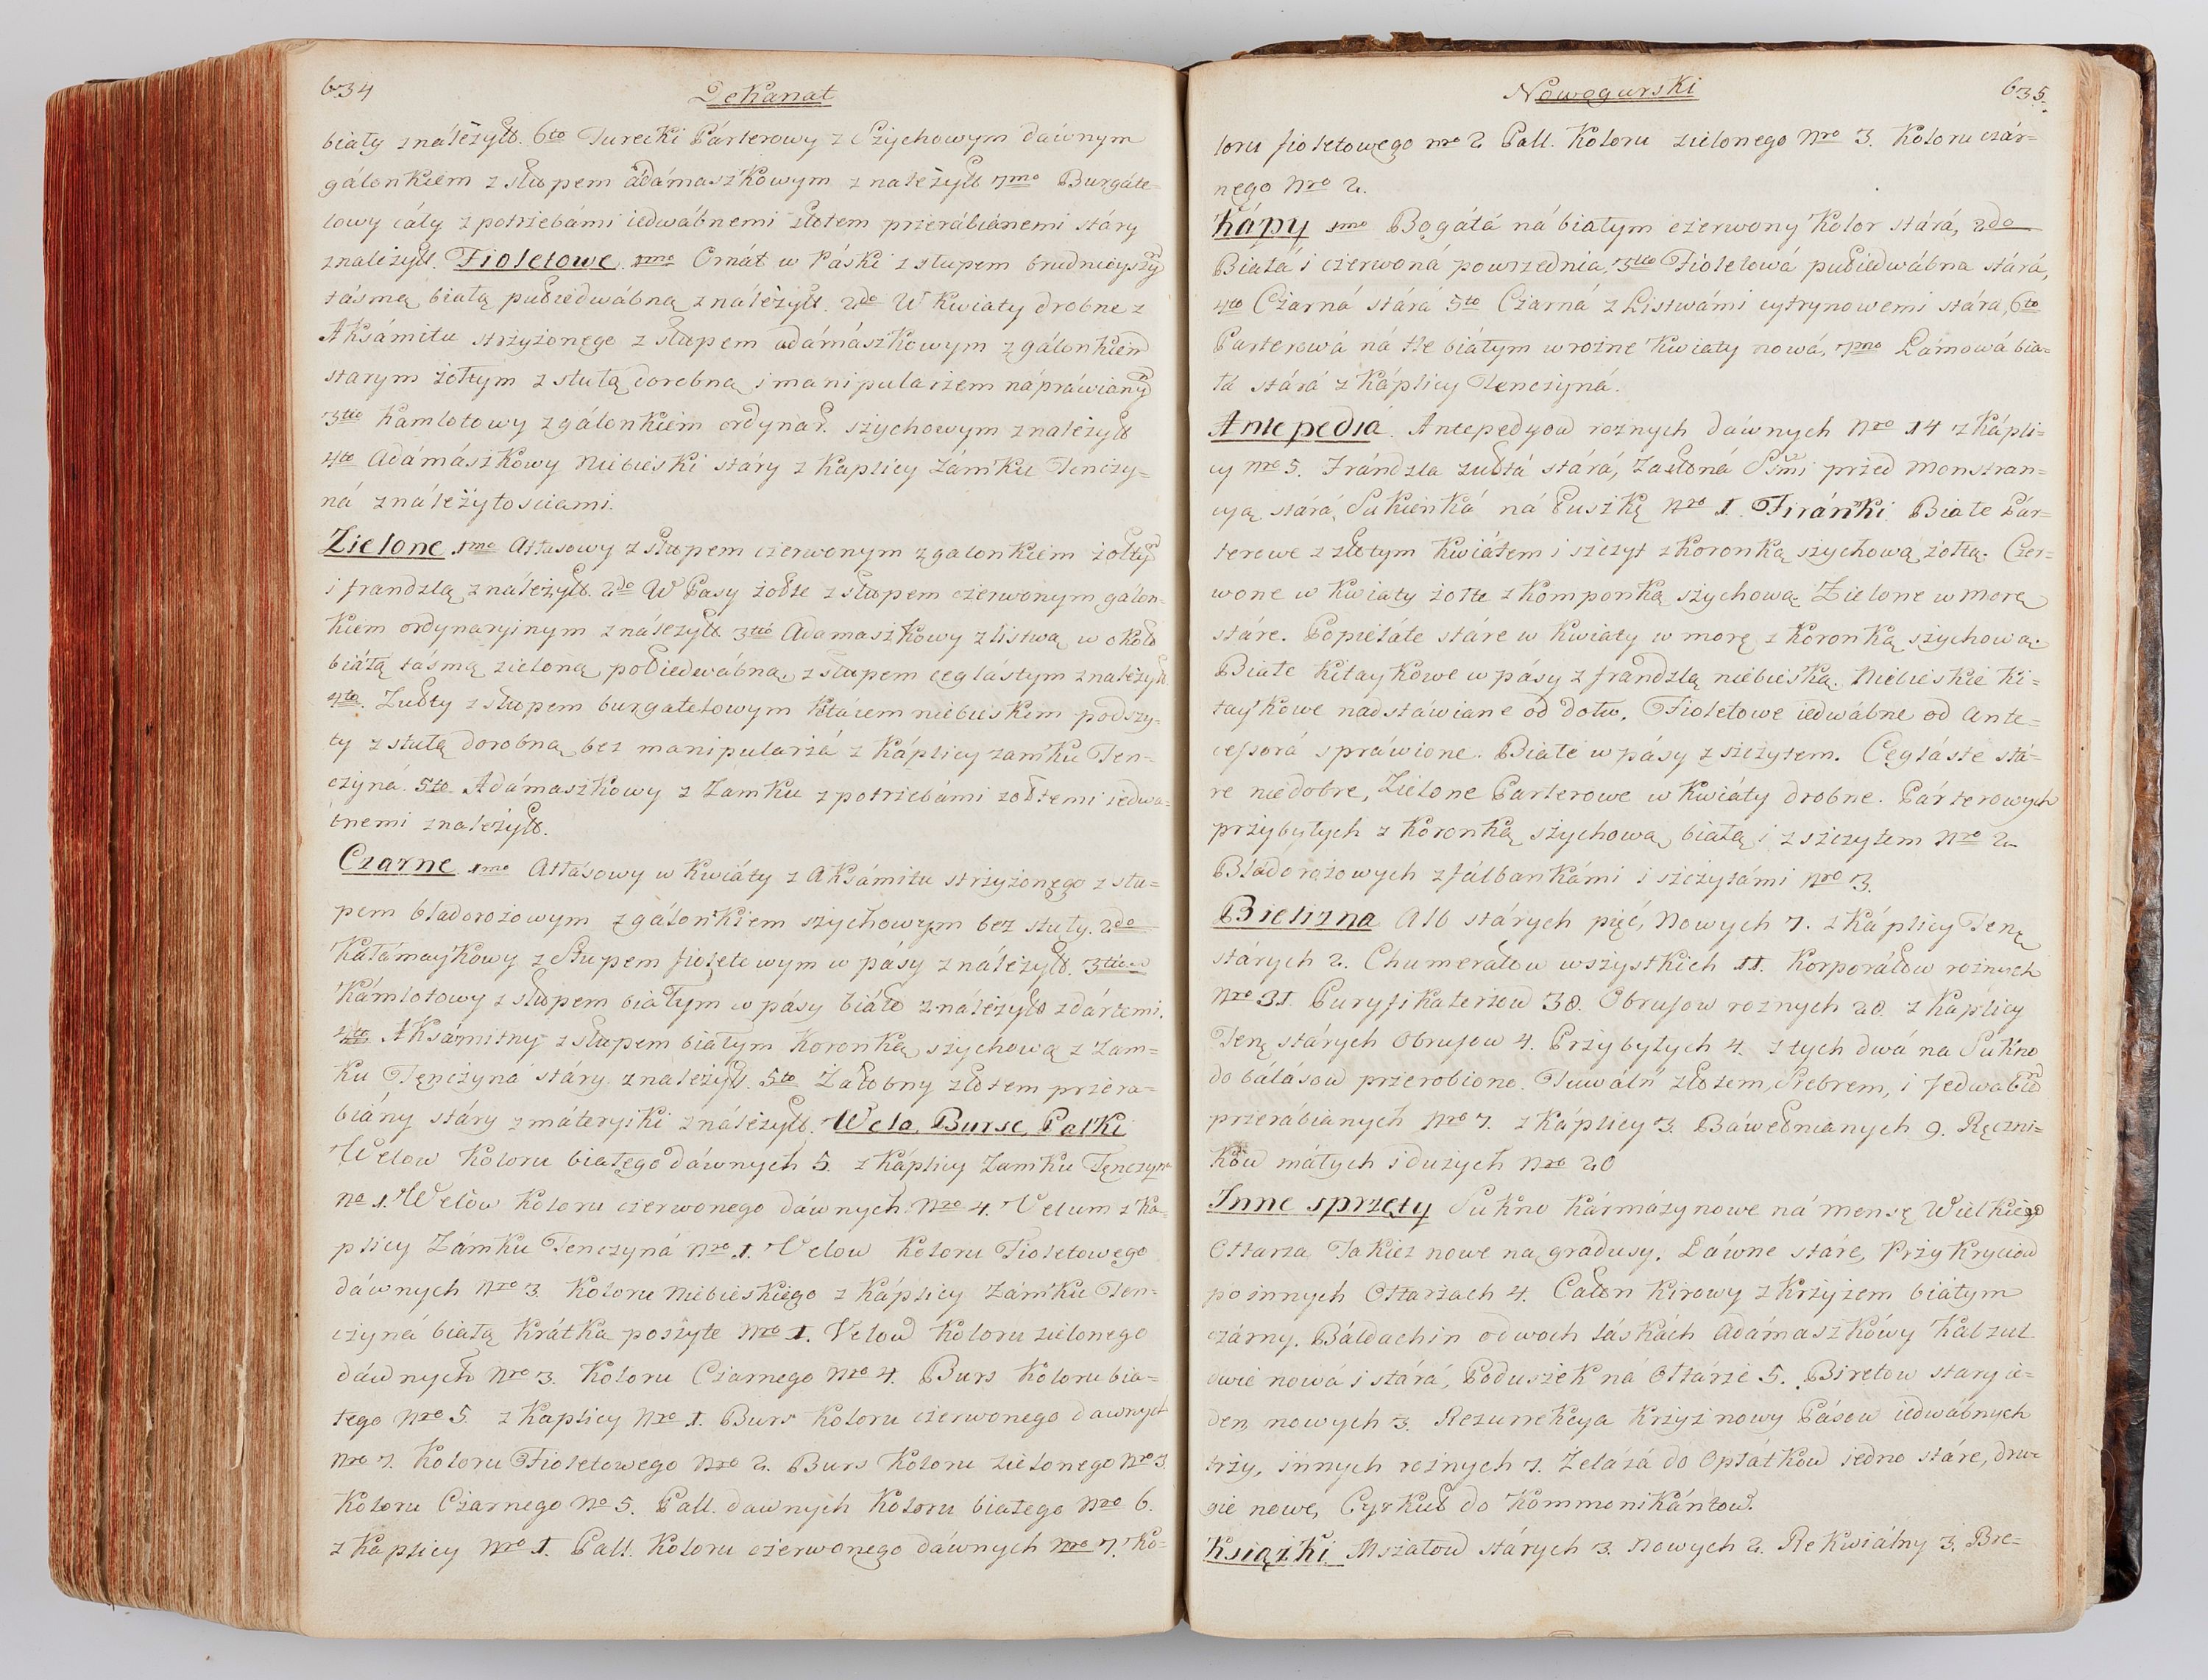 634
Dekanat
biały z należyt. 6to Turecki Párterowy z Szychowym dáwnym
gálonkiem z słupem ádámaszkowym z należyt. 7mo Burgáte-
lowy cáły z potrzebámi iedwábnemi złotem przerábiánemi stáry
z należyt. Fioletowe. 1mo Ornát w Páski z słupem brudnieyszy
tásmą białą pułiedwábną z należyt. 2do W Kwiaty drobne z
Aksámitu strzyżonego z słupem adámászkowym z gálonkiem
starym żółtym z stułą dorobną i manipularzem nápráwiany
3tio Kamlotowy z gálonkiem ordynar. szychowym z należyt
4to Adámászkowy Niebieski stáry z Kaplicy Zámku Tenczy-
ná z náleżytosciami.
Zielone 1mo Atłasowy z słupem czerwonym z galonkiem żołty
i frandzlą z należyt. 2do W Pasy żołte z słupem czerwonym gálon-
kiem ordynaryinym z náleżyt. 3tio Adamaszkowy z listwą w około
białą tásmą zieloną połiedwábną, z słupem ceglástym z należyt.
4to. Zułty z słupem burgatelowym Kitaiem niebieskim podszy-
ty z stułą dorobną bez manipularzá z Káplicy zamku Ten-
czyná. 5to Adámaszkowy z Zamku z potrzebámi zołtemi iedwa-
bnemi z należyt.
Czarne 1mo Atłásowy w Kwiáty z Aksámitu strzyżonego z słu-
pem bladorożowym z gálonkiem szychowym bez stuły. 2do
Kałámaykowy z Słupem fioletowym w pásy z náleżyt. 3tio
Kámlotowy z słupem białym w pásy biáło z należyto zdártemi.
4to Aksámitny z słupem białym Koronką szychową z Zam-
ku Tęnczyna stáry z należyt. 5to Załobny złotem przera-
biány stáry z máteryiki z náleżyt. Wela, Burse, Palki
Welow koloru białego dáwnych 5. z Káplicy Zamku Tęnczyn
No 1. Welow Koloru czerwonego dáwnych Nro 4. Velum z Ka-
plicy Zámku Tenczyná Nro 1. Velow Koloru Fioletowego
dáwnych Nro 3. Koloru Niebieskiego z Káplicy Zámku Ten-
czyná białą krátką poszyte Nro 1. Velow koloru zielonego
dáwnych Nro 3. Koloru Czarnego Nro 4. Burs Koloru bia-
łego Nro 5. z Kaplicy Nro 1. Burs Koloru czerwonego dawnych
Nro 7. Koloru Fioletowego Nro 2. Burs Koloru zielonego Nro 3.
Koloru Czarnego No 5. Pall. dawnych Koloru białego Nro 6.
z Kaplicy Nro 1. Pall. Koloru czerwonego dáwnych Nro 7. Ko-
Nowogurski
635.
loru fioletowego nro 2 Pall. Koloru zielonego Nro 3. Koloru czár-
nego Nro 2.
Kápy 1mo Bogátá ná białym czerwony Kolor stárá, 2do
Białá i czerwoná powszednia, 3tio Fioletowá pułiedwábna stárá,
4to Czárná stárá 5to Czarná z Listwámi cytrynowemi stára, 6to
Parterowá ná tle białym w rożne Kwiaty nowá, 7mo Lámowá bia-
łá stárá z Káplicy Tenczyná.
Antepedia. Antepedyow rożnych dáwnych Nro 14 z Kápli-
cy Nro 5. Frándzla zułtá stárá, Zasłoná Ssmi przed Monstran-
cyą stárá, Sukienká ná Puszkę Nro 1. Firánki Białe Pár-
terowe z złotym kwiátem i szczyt z koronką szychową żółtą. Czer-
wone w kwiaty żołte z komponką szychową. Zielone w morę
stáre. Popiełáte stáre w Kwiaty w morę z Koronką szychową.
Białe Kitaykowe w pásy z frandzlą niebieską. Niebieskie Ki-
taykowe nadstáwiane od dołu, Fioletowe iedwábne od Ante-
cessorá spráwione. Białe w pásy z szczytem. Cegláste stá-
re niedobre, Zielone Parterowe w Kwiáty drobne. Párterowych
przybyłych z Koronką szychową białą i z szczytem Nro 2
Bladorożowych z fálbankámi i szczytámi Nro 3.
Bielizna Alb stárych pięć, Nowych 7. z Káplicy Tenę
stárych 2. Chumerałow wszystkich 11. Korporáłow rożnych
Nro 31. Puryfikaterzow 30. Obrusow rożnych 20. z Kaplicy
Tenę stárych Obrusow 4. Przybyłych 4. z tych dwá na Sukno
do bálasow przerobiono. Tuwáln złotem, Srebrem, i Jedwabie
przerábianych Nro 7. z Káplicy 3. Báwełnianych 9. Ręczni-
kow máłych i dużych Nro 20
Inne sprzęty Sukno Kármázynowe ná mensę Wielkiego
Ołtarza Takież nowe na grádusy. Láwne stáre, Przykryciow
po innych Ołtarzach 4. Całon Kirowy z Krzyżem białym
czárny. Báldachin o dwoch láskách Adámaszkowy Kalzul
dwie nowá i stárá, Poduszek ná Ołtárze 5. Biretow stary ie-
den, nowych 3. Rezurrekcya Krzyż nowy Pásow iedwábnych
trzy, innych rożnych 7. Zelázá do Opłátkow iedno stáre, dru-
gie nowe, Cyrkuł do Kommonikántow.
Książki Mszałow stárych 3. Nowych 2. Rekwiálny 3. Bre-